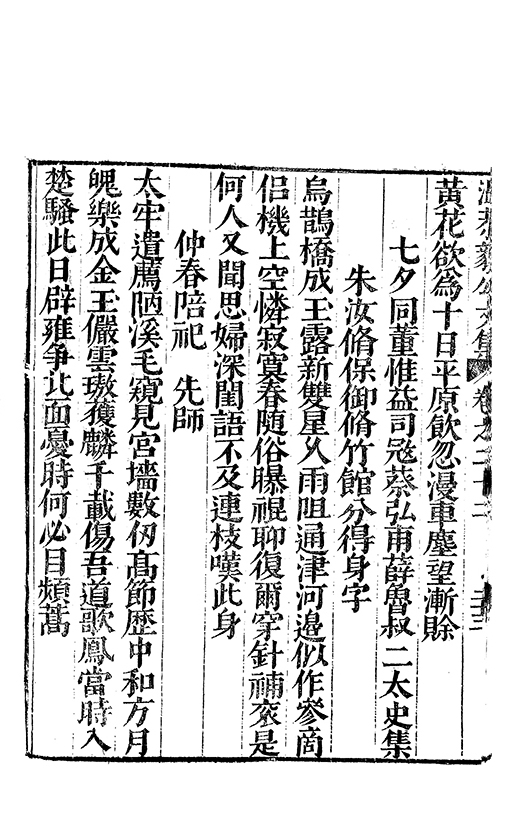 温恭毅公文集 卷之二十二
黃花欲為十日平原飲忽漫車塵望漸賖
七夕同董惟益司寇蔡弘甫薛魯叔二太史集
朱汝脩侍御脩竹館分得身字
烏鵲橋成玉露新雙星久雨阻通津河邊似作參商
侣機上空憐寂寞春随俗曝裩聊復爾穿針補衮是
何人又聞思婦深閨語不及連枝嘆此身
仲春陪祀 先師
太牢遺薦陋溪毛窺見宫墻數仞髙節歴中和方月
魄樂成金玉儼雲璈獲麟千載傷吾道歌鳳當時入
楚騷此日辟雍争北面憂時何必目頻蒿